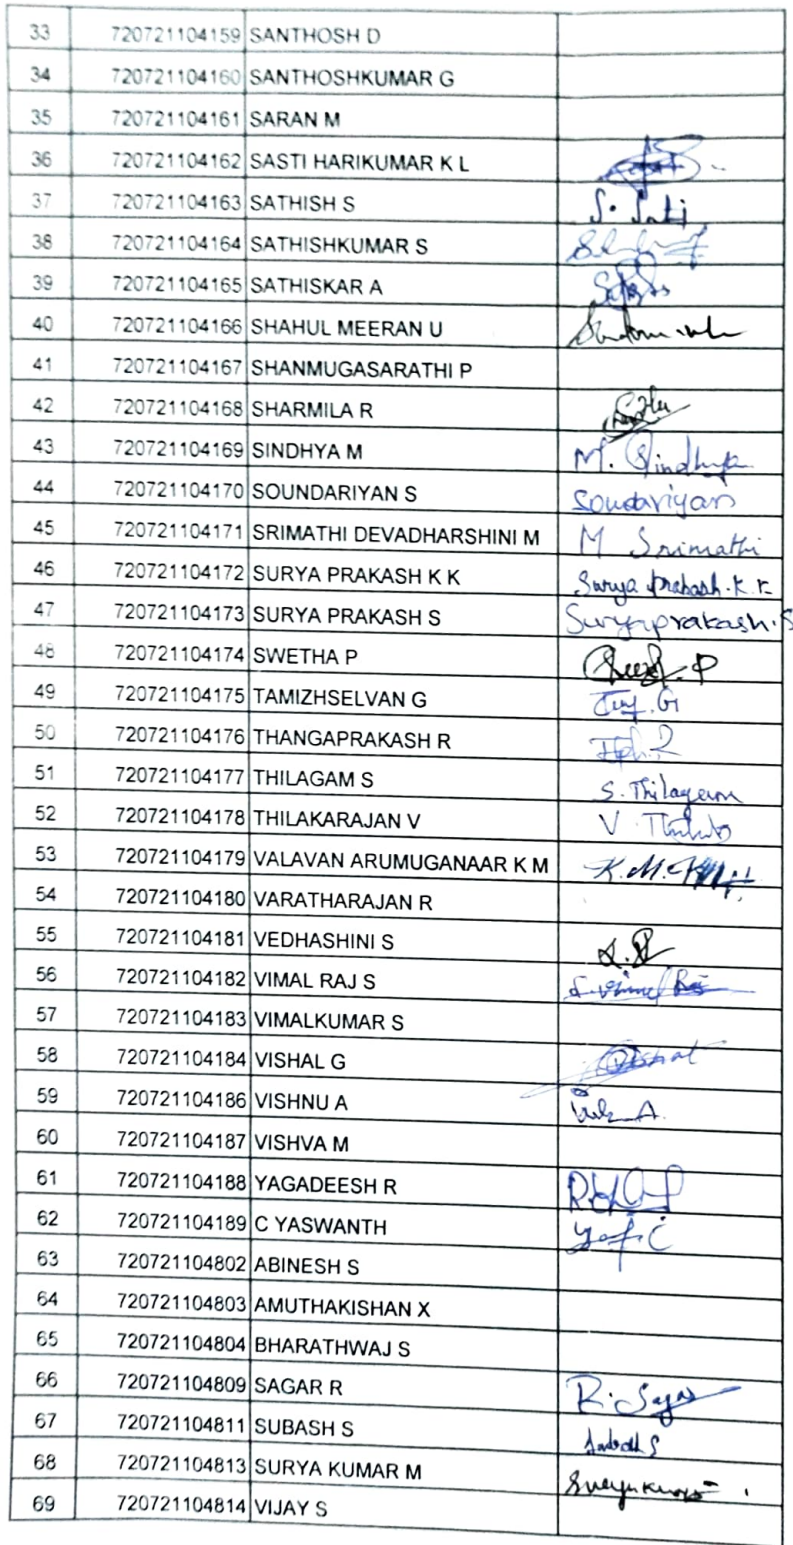 33 720721104159 SANTHOSH D
34 720721104160 SANTHOSHKUMAR G
35 720721104161 SARAN M
36 720721104162 SASTI HARIKUMAR K L
37 720721104163 SATHISH S
38 720721104164 SATHISHKUMAR S
39 720721104165 SATHISKAR A
40 720721104166 SHAHUL MEERAN U
41 720721104167 SHANMUGASARATHI P
42 720721104168 SHARMILA R
43 720721104169 SINDHYA M M. Sindhya
44 720721104170 SOUNDARIYAN S Soundariyan
45 720721104171 SRIMATHI DEVADHARSHINI M M Srimathi
46 720721104172 SURYA PRAKASH K K Surya prakash.K.K
47 720721104173 SURYA PRAKASH S Suryaprakash.S
48 720721104174 SWETHA P
49 720721104175 TAMIZHSELVAN G
50 720721104176 THANGAPRAKASH R
51 720721104177 THILAGAM S S. Thilagam
52 720721104178 THILAKARAJAN V
53 720721104179 VALAVAN ARUMUGANAAR K M
54 720721104180 VARATHARAJAN R
55 720721104181 VEDHASHINI S
56 720721104182 VIMAL RAJ S
57 720721104183 VIMALKUMAR S
58 720721104184 VISHAL G Vishal
59 720721104186 VISHNU A
60 720721104187 VISHVA M
61 720721104188 YAGADEESH R
62 720721104189 C YASWANTH
63 720721104802 ABINESH S
64 720721104803 AMUTHAKISHAN X
65 720721104804 BHARATHWAJ S
66 720721104809 SAGAR R R. Sagar
67 720721104811 SUBASH S
68 720721104813 SURYA KUMAR M
69 720721104814 VIJAY S